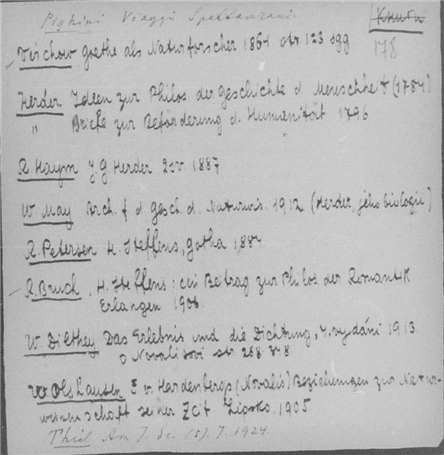 Pighini Viaggi Spallanzani.
Книги
178
Virchow Goethe als Naturforscher 1864 str 123 sqq
Herder Ideen zur Philos. der Geschichte d Menschheit (1784)
" Briefe zur Beförderung d. Humanität 1796
R. Haym J. G Herder 2 sv. 1887
W. May Arch. f d Gesch. d. Naturwis. 1912 (Herder, jeho biologie)
R. Petersen H. Steffens, Gotha 1884
R. Bruch, H. Steffens: ein Beitrag zur Philos der Romantik
Erlangen 1906
W. Dilthey Das Erlebnis und die Dichtung, 4. vydání 1913
o Novalisovi str 268
W Olshausen F. v. Hardenbergs (Novalis) Beziehungen zur Natur-
wissenschaft seiner Zeit Lipsko. 1905
Am. J. Sc. (5). 7. 1924